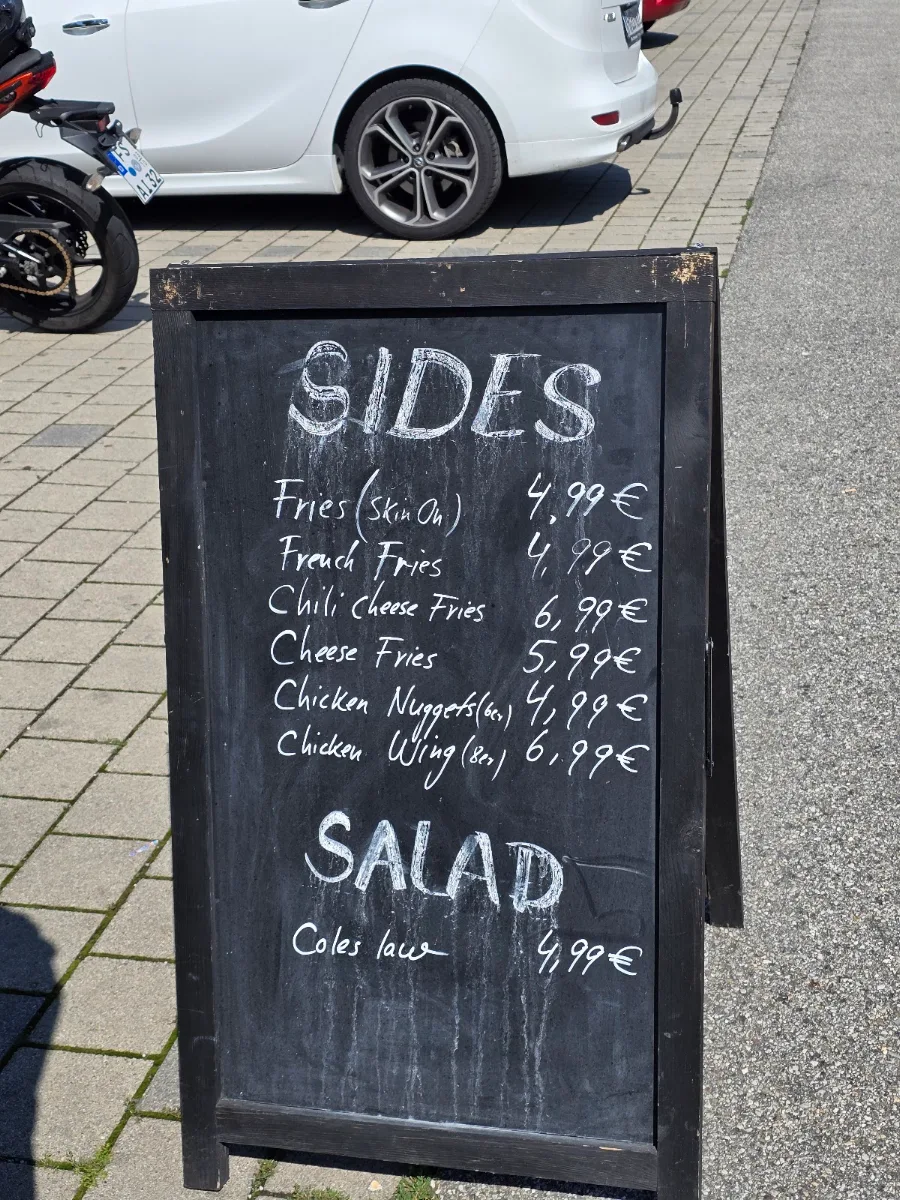 AI32
SIDES
Fries (Skin On) 4,99 €
French Fries 4,99 €
Chili cheese Fries 6,99 €
Cheese Fries 5,99 €
Chicken Nuggets (6er) 4,99 €
Chicken Wing (8er) 6,99 €
SALAD
Coles law 4,99 €